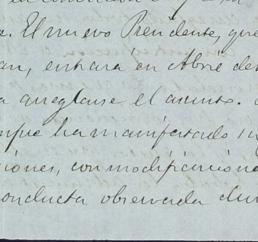 a. El nuevo Presidente, que
an, entrará en Abril de
a arreglarse el asunto.
mpre ha manifestado su
ciones, con modificaciones
conducta observada dur